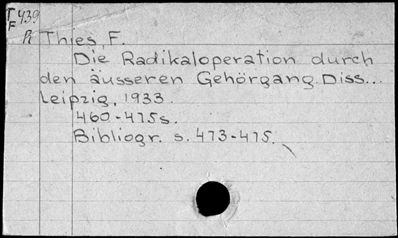 T439
F
R Thies, F.
Die Radikaloperation durch
den äusseren Gehörgang. Diss...
Leipzig, 1933.
460-475s.
Bibliogr. s. 473-475.